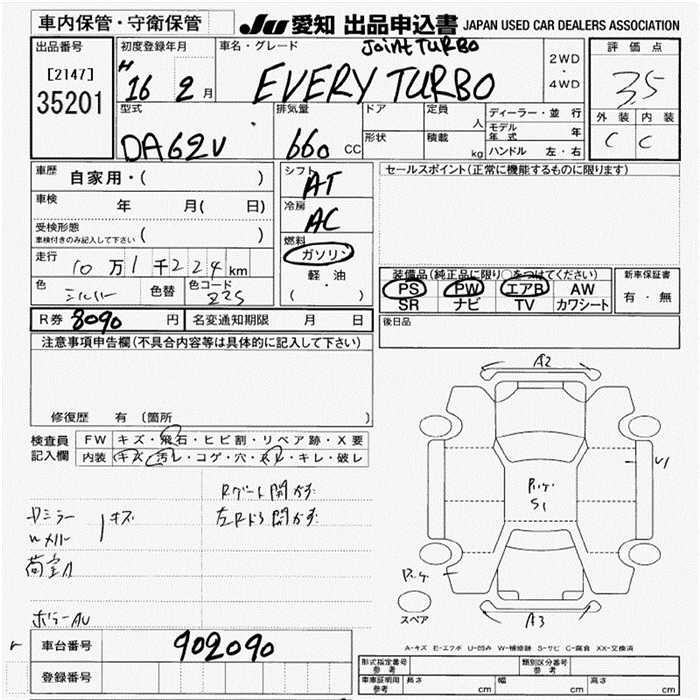 車内保管・守衛保管 JU 愛知 出品申込書 JAPAN USED CAR DEALERS ASSOCIATION
出品番号 初度登録年月 車名・グレード Joint TURBO 評価点
[2147] H 16 2月 EVERY TURBO 2WD・4WD 3.5
35201
型式 排気量 ドア 定員 人 ディーラー・並行 外装 内装
モデル年式 年
DA62V 660 CC 形状 積載 kg ハンドル 左・右 C C
車歴 自家用・( ) シフト AT セールスポイント(正常に機能するものに限ります)
車検 年 月( 日) 冷房 AC
受検形態 ( )
車検付きのみ記入して下さい
燃料 ガソリン
走行 10万1千224km 軽油
装備品(純正品に限り○をつけてください) 新車保証書
色 シルバー 色替 色コード Z2S ( ・ ) PS PW エアB AW 有・無
SR ナビ TV カワシート
R券 8090 円 名変通知期限 月 日 後日品
注意事項申告欄(不具合内容等は具体的に記入して下さい)
修復歴 有 (箇所 )
検査員記入欄 FW キズ・飛石・ヒビ割・リペア跡・X要
内装 キズ・汚レ・コゲ・穴・スレ・キレ・破レ
A2
Rゲート開かず
左Rドア開かず
キズ
荷室
S1
A3
スペア
A-キズ E-エクボ U-凹み W-補修跡 S-サビ C-腐食 XX-交換済
車台番号 902090
登録番号
形式指定番号 参考 類別区分番号 参考
車庫証明用 参考 長さ cm 幅 cm 高さ cm